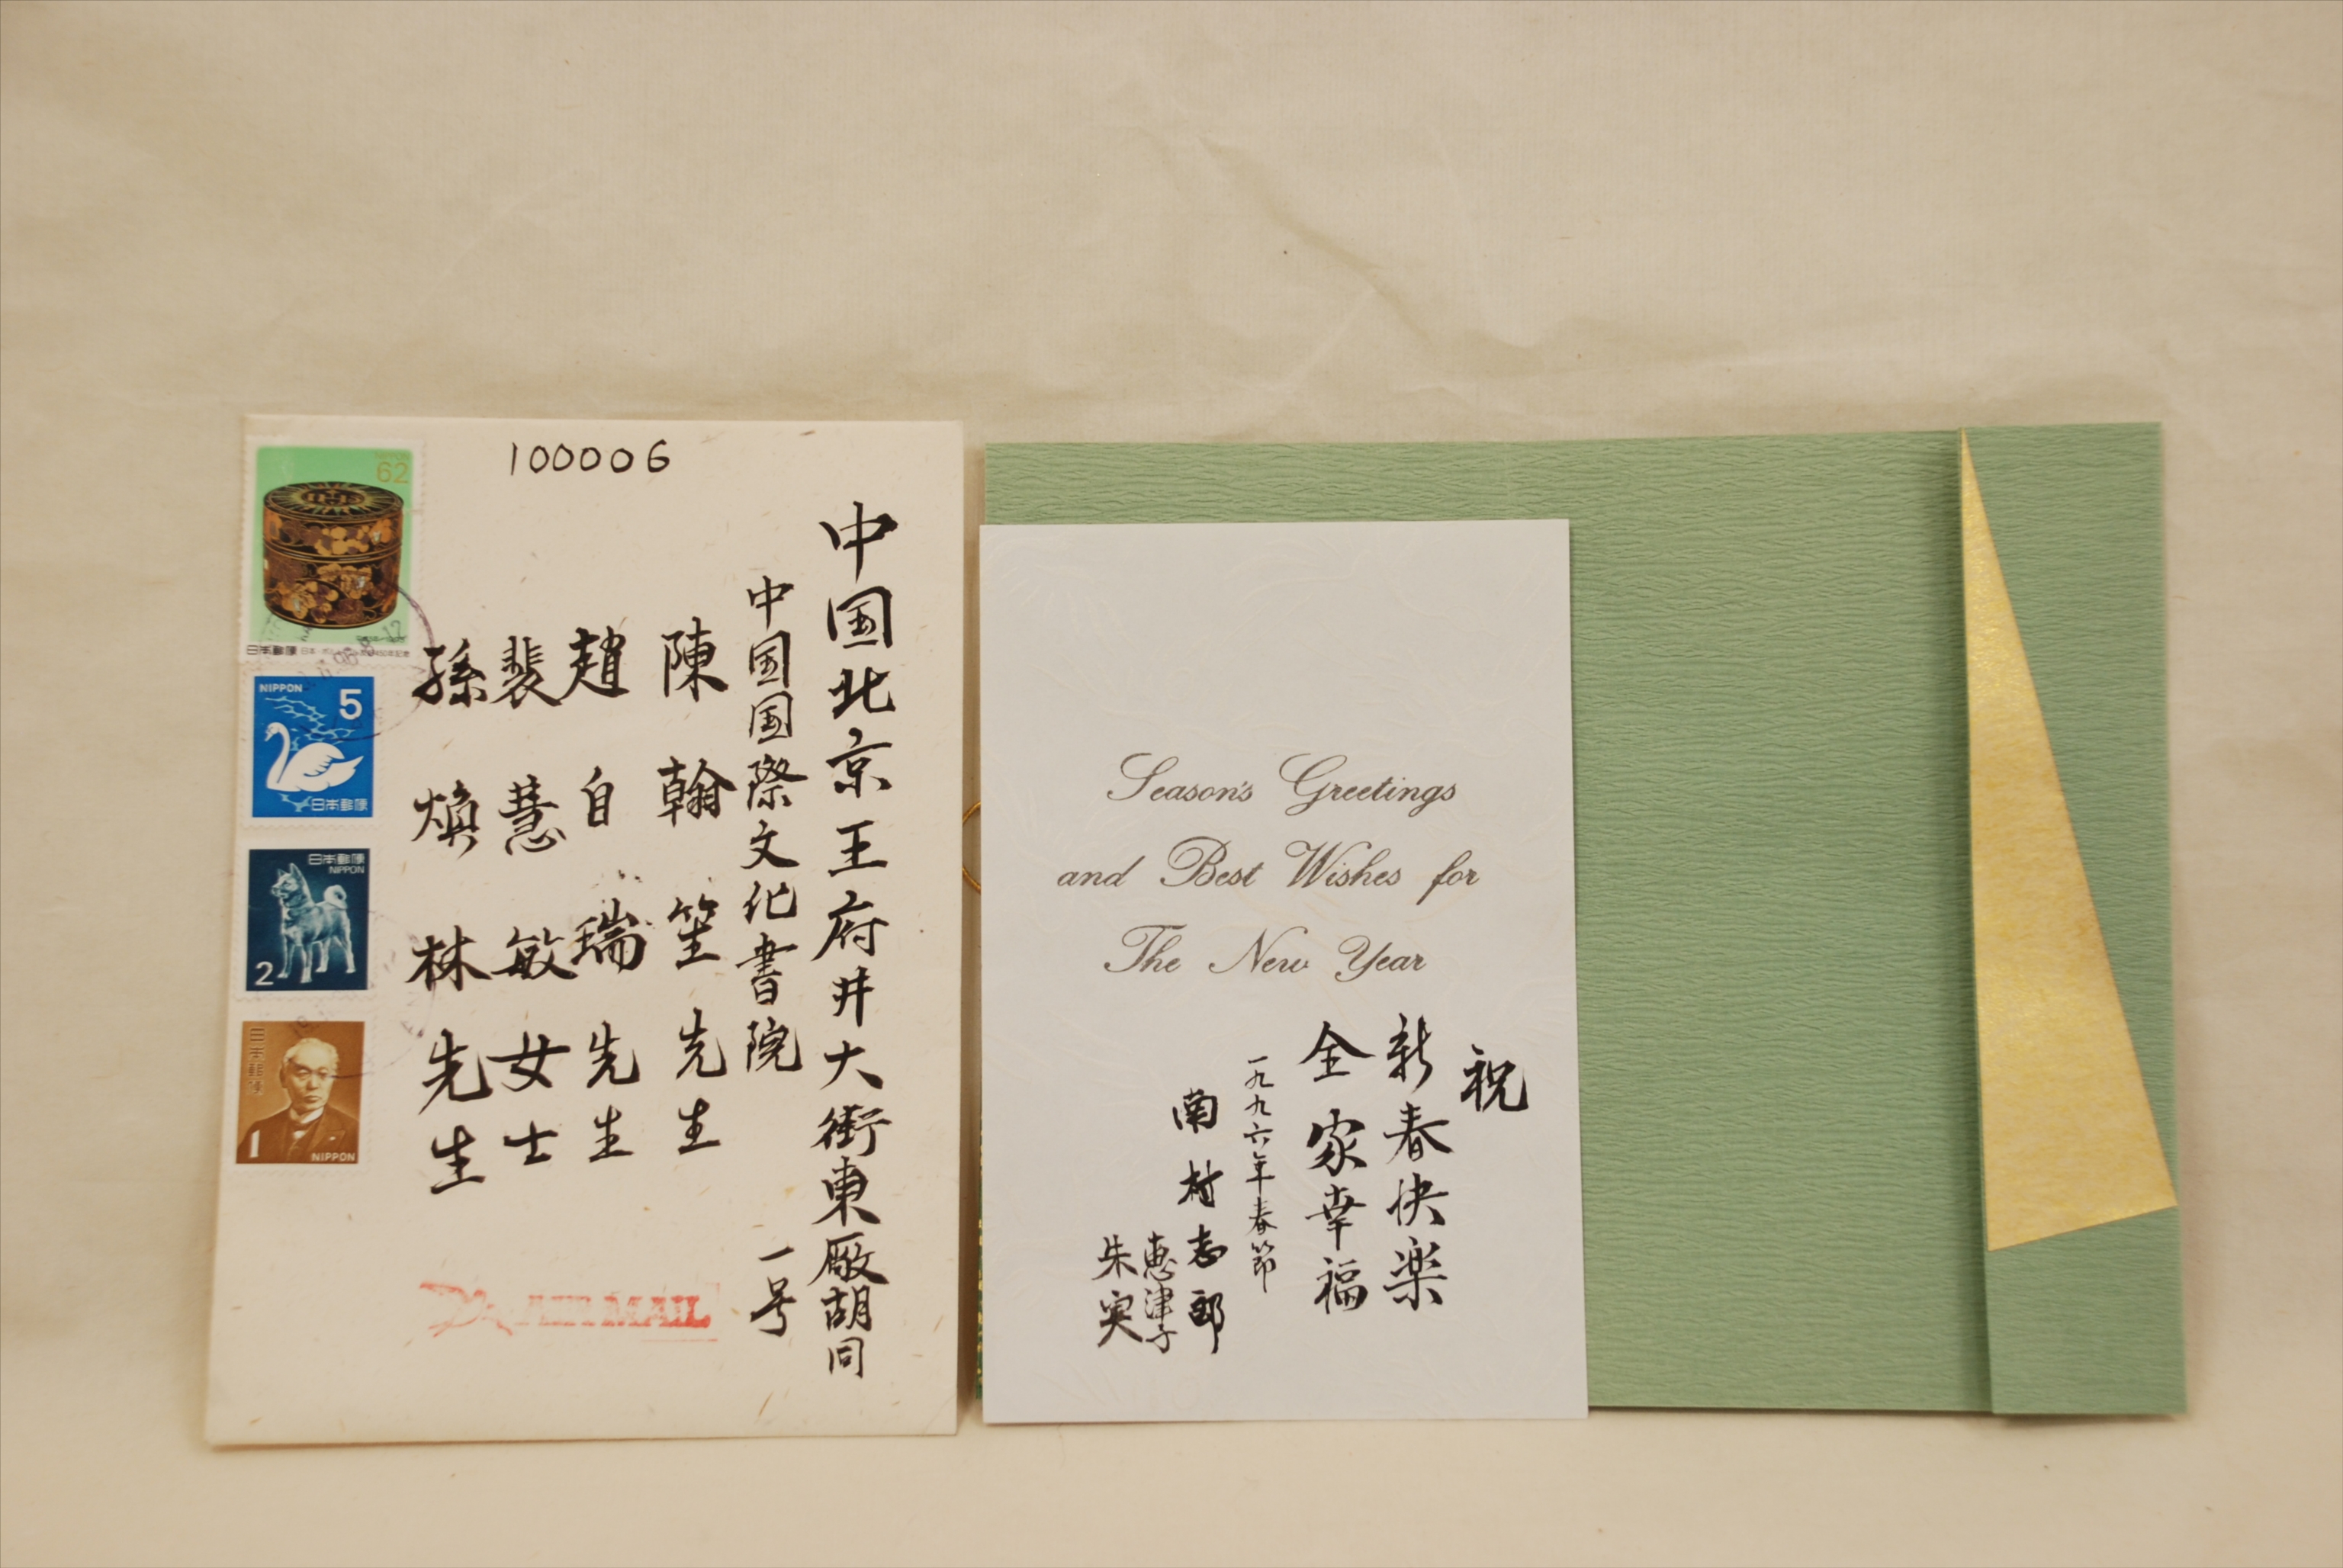 100006
中国北京王府井大街東厰胡同
一号
中国国際文化書院
陳翰笙先生
趙自瑞先生
裴慧敏女士
孫煥林先生
AIR MAIL
NIPPON
62
日本郵便
NIPPON
5
日本郵便
日本郵便
NIPPON
2
日本郵便
1
NIPPON
Season's Greetings
and Best Wishes for
The New Year
祝
新春快楽
全家幸福
一九九六年春節
南村志郎
恵津子
朱実